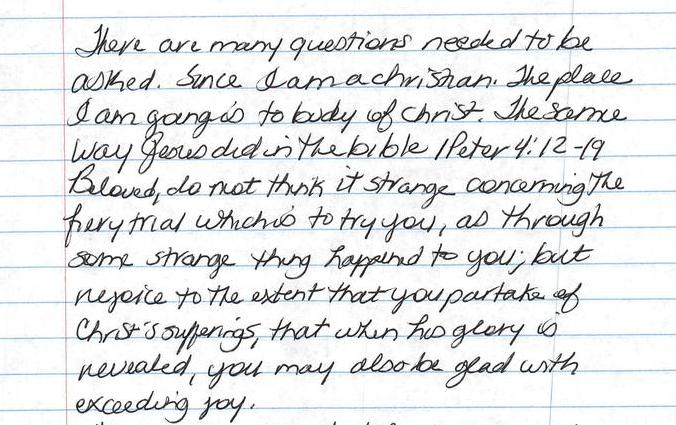 There are many questions needed to be
asked. Since I am a christian. The place
I am going is to body of Christ. The same
way Jesus did in the bible 1 Peter 4:12-19
Beloved, do not think it strange concerning the
fiery trial which is to try you, as through
some strange thing happened to you; but
rejoice to the extent that you partake of
Christ's sufferings, that when his glory is
revealed, you may also be glad with
exceeding joy.